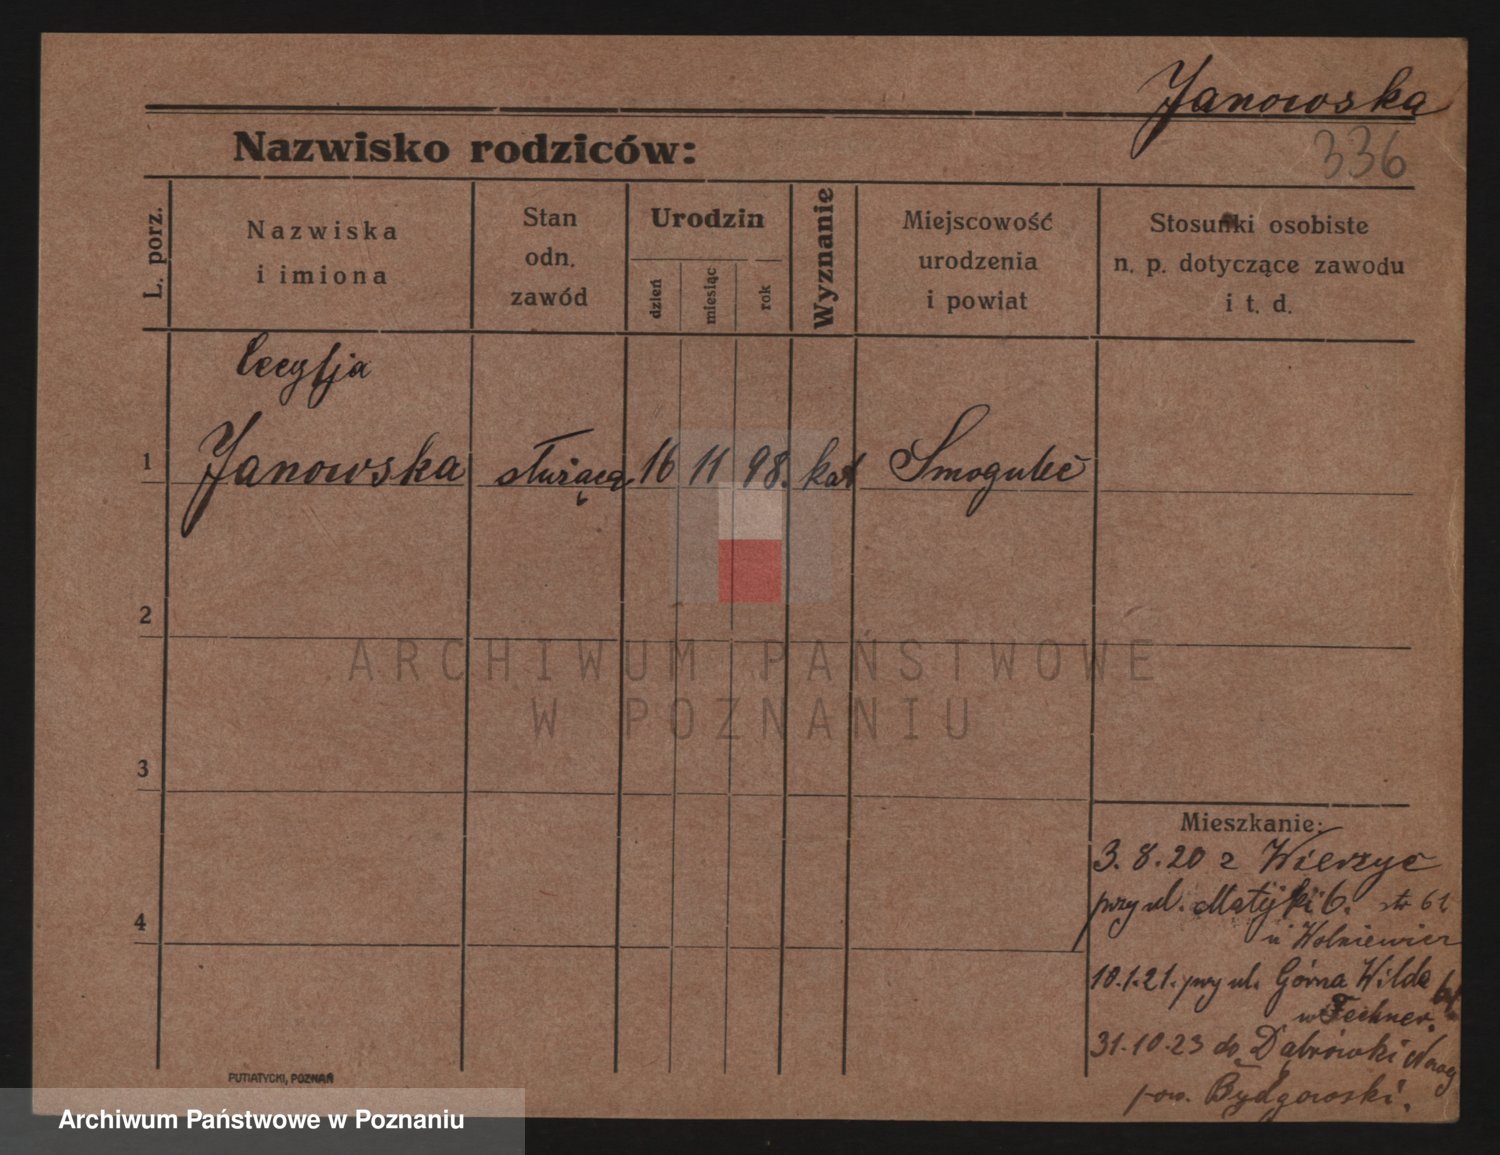 Janowska
336
Nazwisko rodziców:
L. porz.
Nazwiska
i imiona
Stan
odn.
zawód
Urodzin
dzień
miesiąc
rok
Wyznanie
Miejscowość
urodzenia
i powiat
Stosunki osobiste
n. p. dotyczące zawodu
i t. d.
Cecylja
1 Janowska służąca 16 11 98. kat Smogulec
2
ARCHIWUM PAŃSTWOWE
W POZNANIU
3
Mieszkanie:
3. 8. 20 z Wierzyc
przy ul. Matejki 6. str 61
u Wolniewicz
4
10.1.21. przy ul. Górna Wilda
u Fechner.
31.10.23 do Dąbrówki Nowej
pow. Bydgowski.
PUTIATYCKI, POZNAŃ
Archiwum Państwowe w Poznaniu